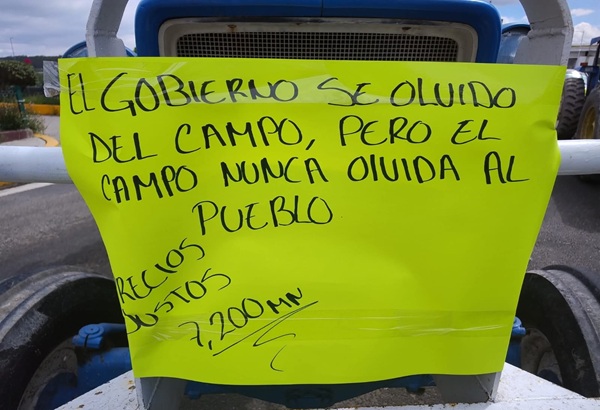 EL GOBIERNO SE OLVIDO
DEL CAMPO, PERO EL
CAMPO NUNCA OlVIDA AL
PUEBLO
PRECIOS
JUSTOS
7,200 MN